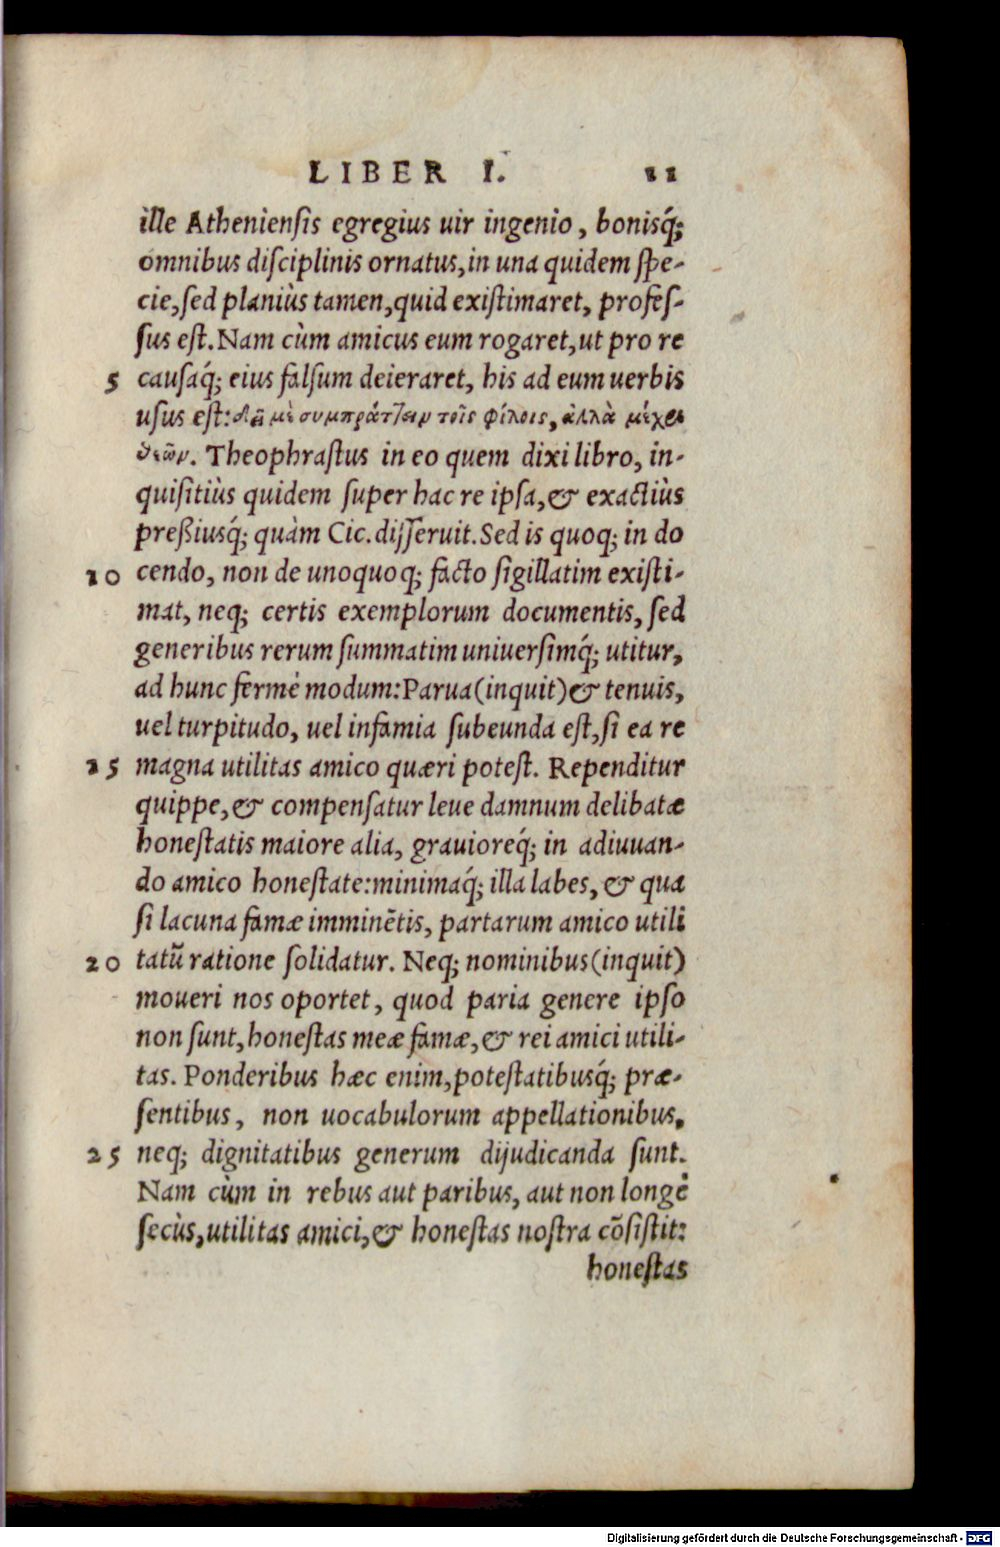 LIBER I. 11
ille Atheniensis egregius uir ingenio, bonisq́;
omnibus disciplinis ornatus, in una quidem spe-
cie, sed planiùs tamen, quid existimaret, profes-
sus est. Nam cùm amicus eum rogaret, ut pro re
5 causaq́; eius falsum deieraret, his ad eum uerbis
usus est: δεῖ μὲ συμπράττειν τοῖς φίλοις, ἀλλὰ μέχρι
θεῶν. Theophrastus in eo quem dixi libro, in-
quisitiùs quidem super hac re ipsa, & exactiùs
preßiusq́; quàm Cic. disseruit. Sed is quoq; in do
10 cendo, non de unoquoq; facto sigillatim existi-
mat, neq; certis exemplorum documentis, sed
generibus rerum summatim uniuersimq́; utitur,
ad hunc fermè modum: Parua (inquit) & tenuis,
uel turpitudo, uel infamia subeunda est, si ea re
15 magna utilitas amico quæri potest. Rependitur
quippe, & compensatur leue damnum delibatæ
honestatis maiore alia, grauioreq́; in adiuuan-
do amico honestate: minimaq́; illa labes, & qua
si lacuna famæ imminẽtis, partarum amico utili
20 tatũ ratione solidatur. Neq; nominibus (inquit)
moueri nos oportet, quod paria genere ipso
non sunt, honestas meæ famæ, & rei amici utili-
tas. Ponderibus hæc enim, potestatibusq́; præ-
sentibus, non uocabulorum appellationibus,
25 neq; dignitatibus generum dijudicanda sunt.
Nam cùm in rebus aut paribus, aut non longè
secùs, utilitas amici, & honestas nostra cõsistit:
honestas
Digitalisierung gefördert durch die Deutsche Forschungsgemeinschaft - DFG